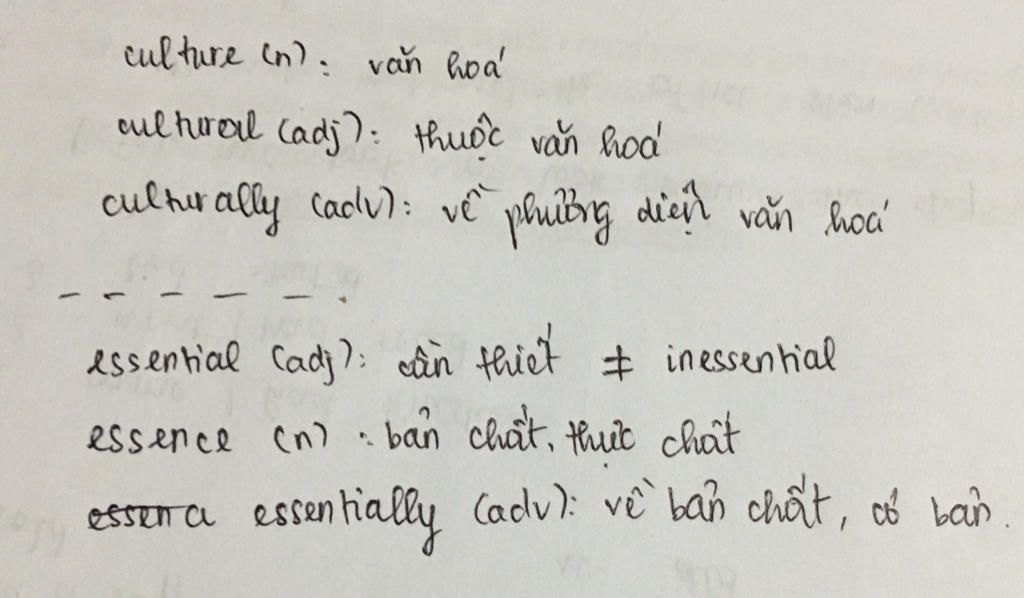 culture (n): văn hoá
cultural (adj): thuộc văn hoá
culturally (adv): về phương diện văn hoá
- - - - - .
essential (adj): cần thiết ≠ inessential
essence (n): bản chất, thực chất
essentially (adv): về bản chất, cơ bản.